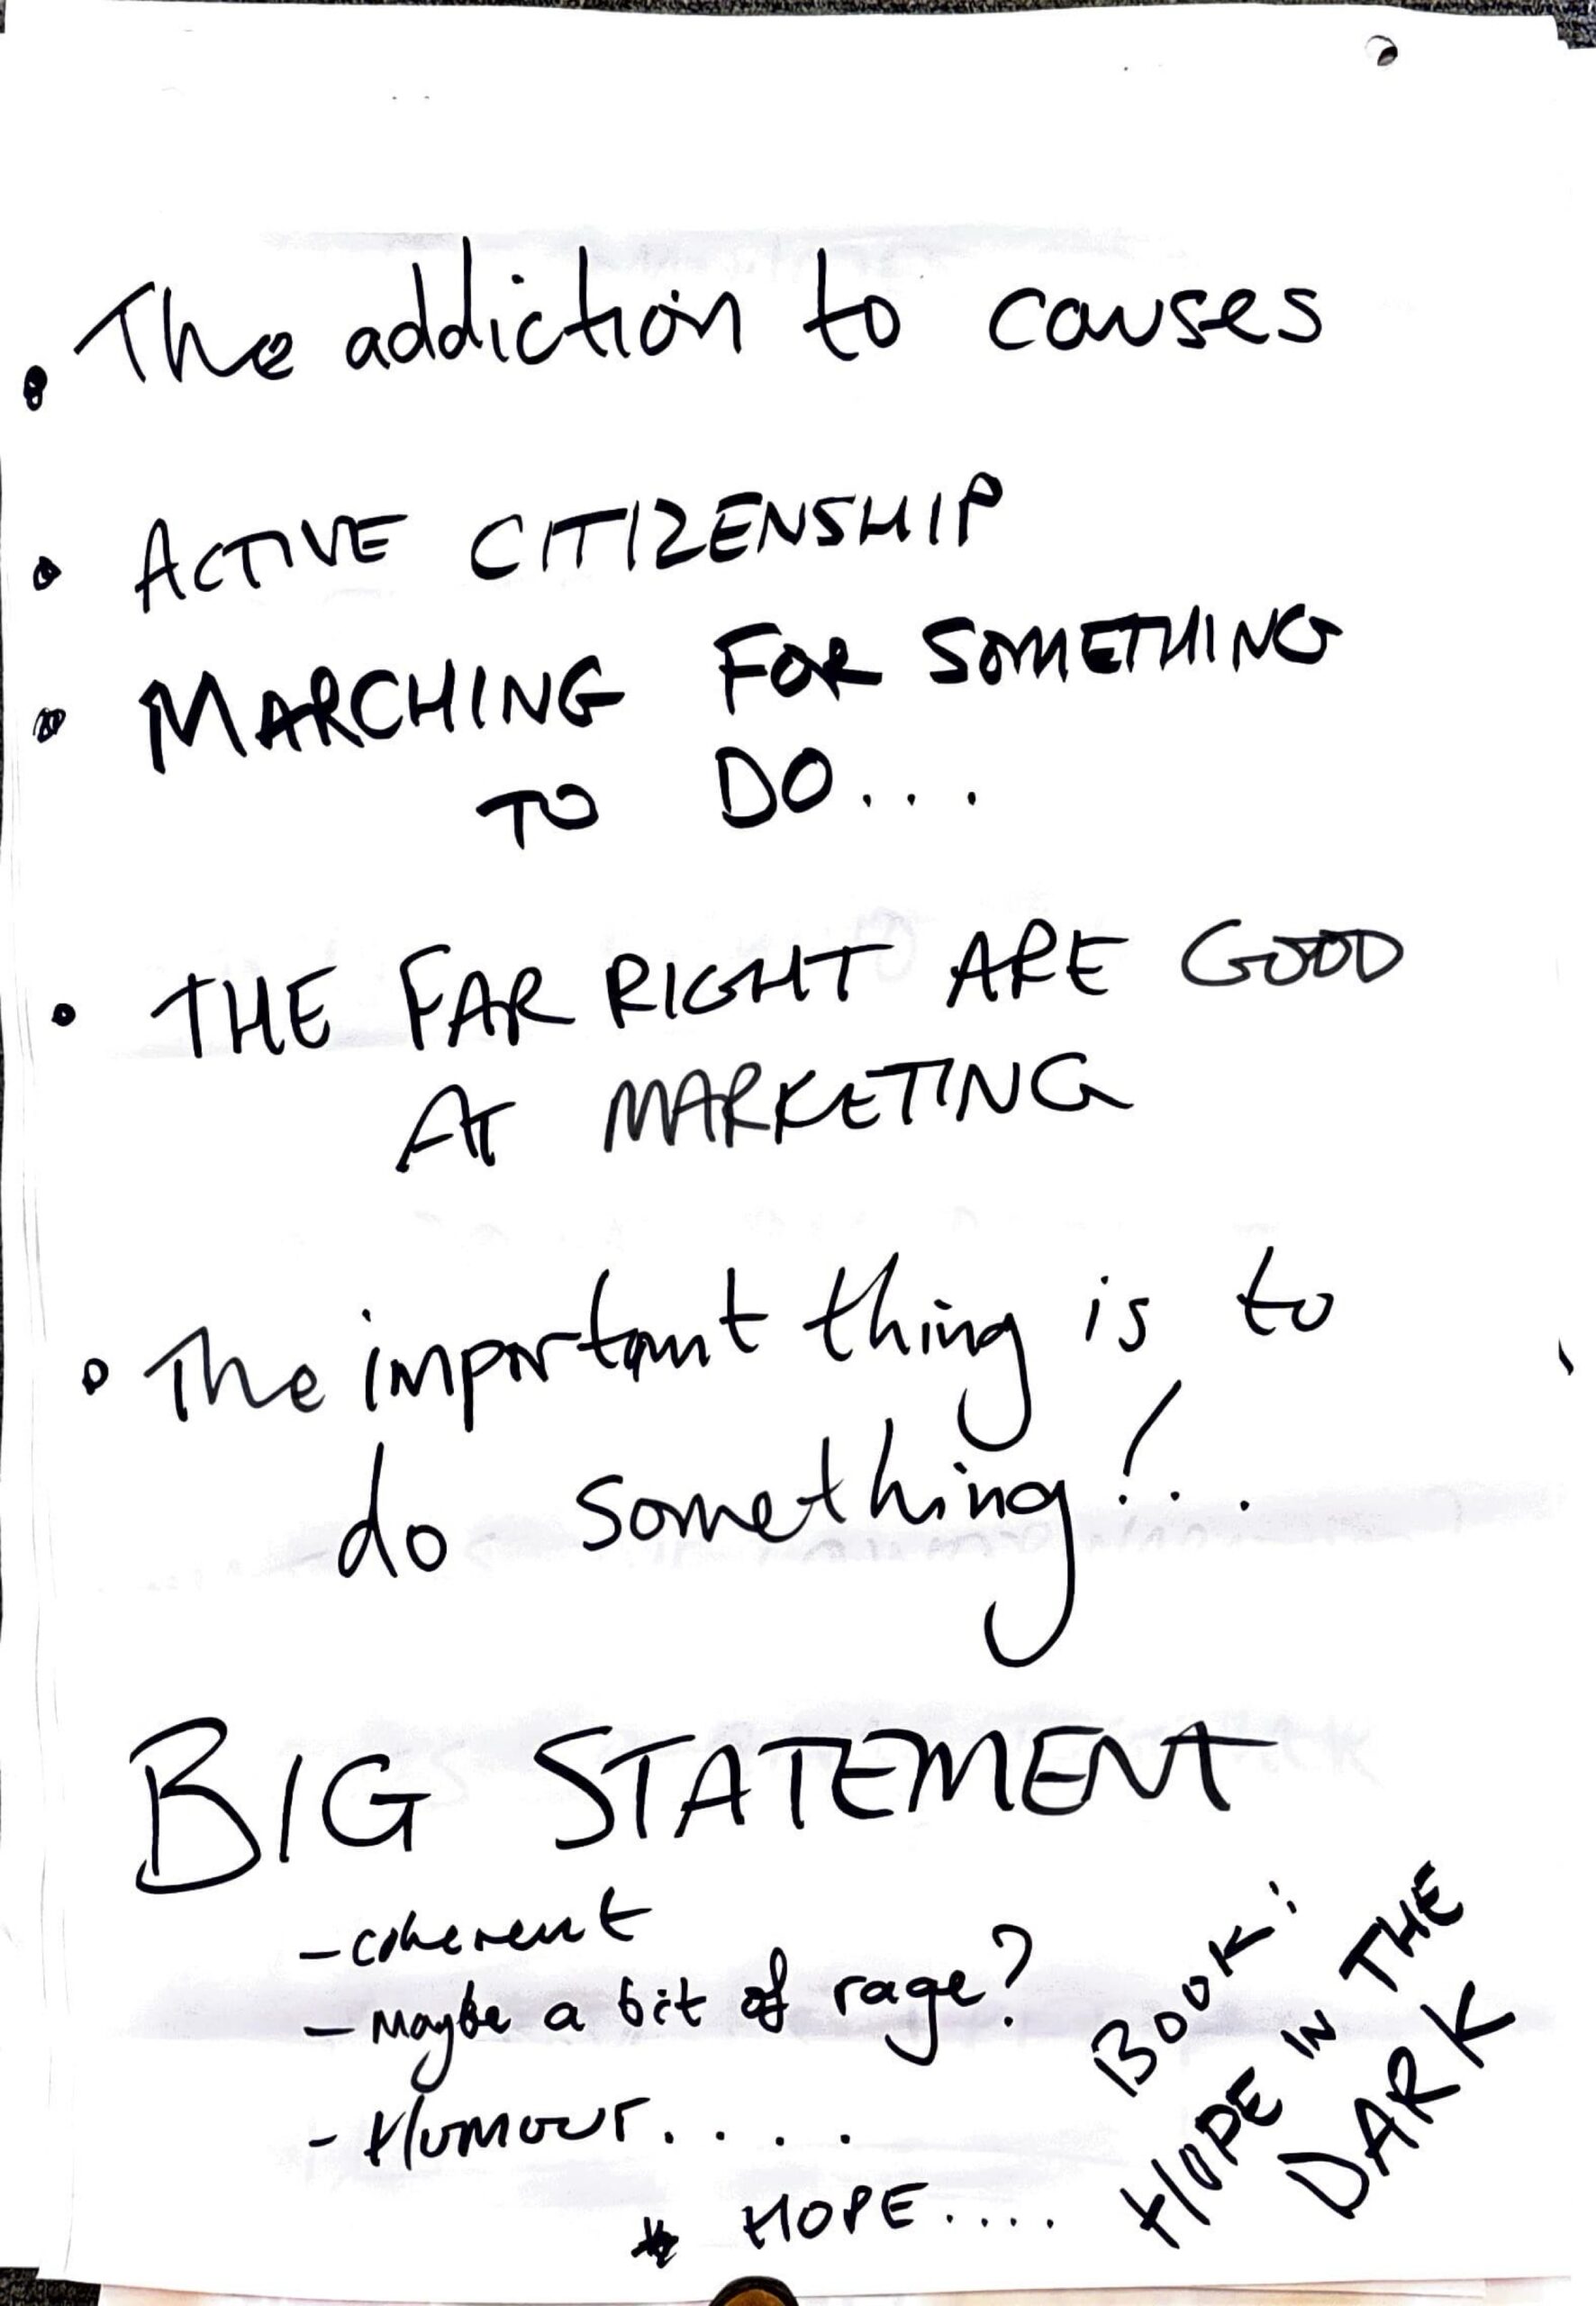 • The addiction to causes
• ACTIVE CITIZENSHIP
• MARCHING FOR SOMETHING
TO DO...
• THE FAR RIGHT ARE GOOD
AT MARKETING
• The important thing is to
do something!..
BIG STATEMENT
- coherent
- Maybe a bit of rage?
- Humour....
* HOPE....
BOOK:
HOPE IN THE
DARK